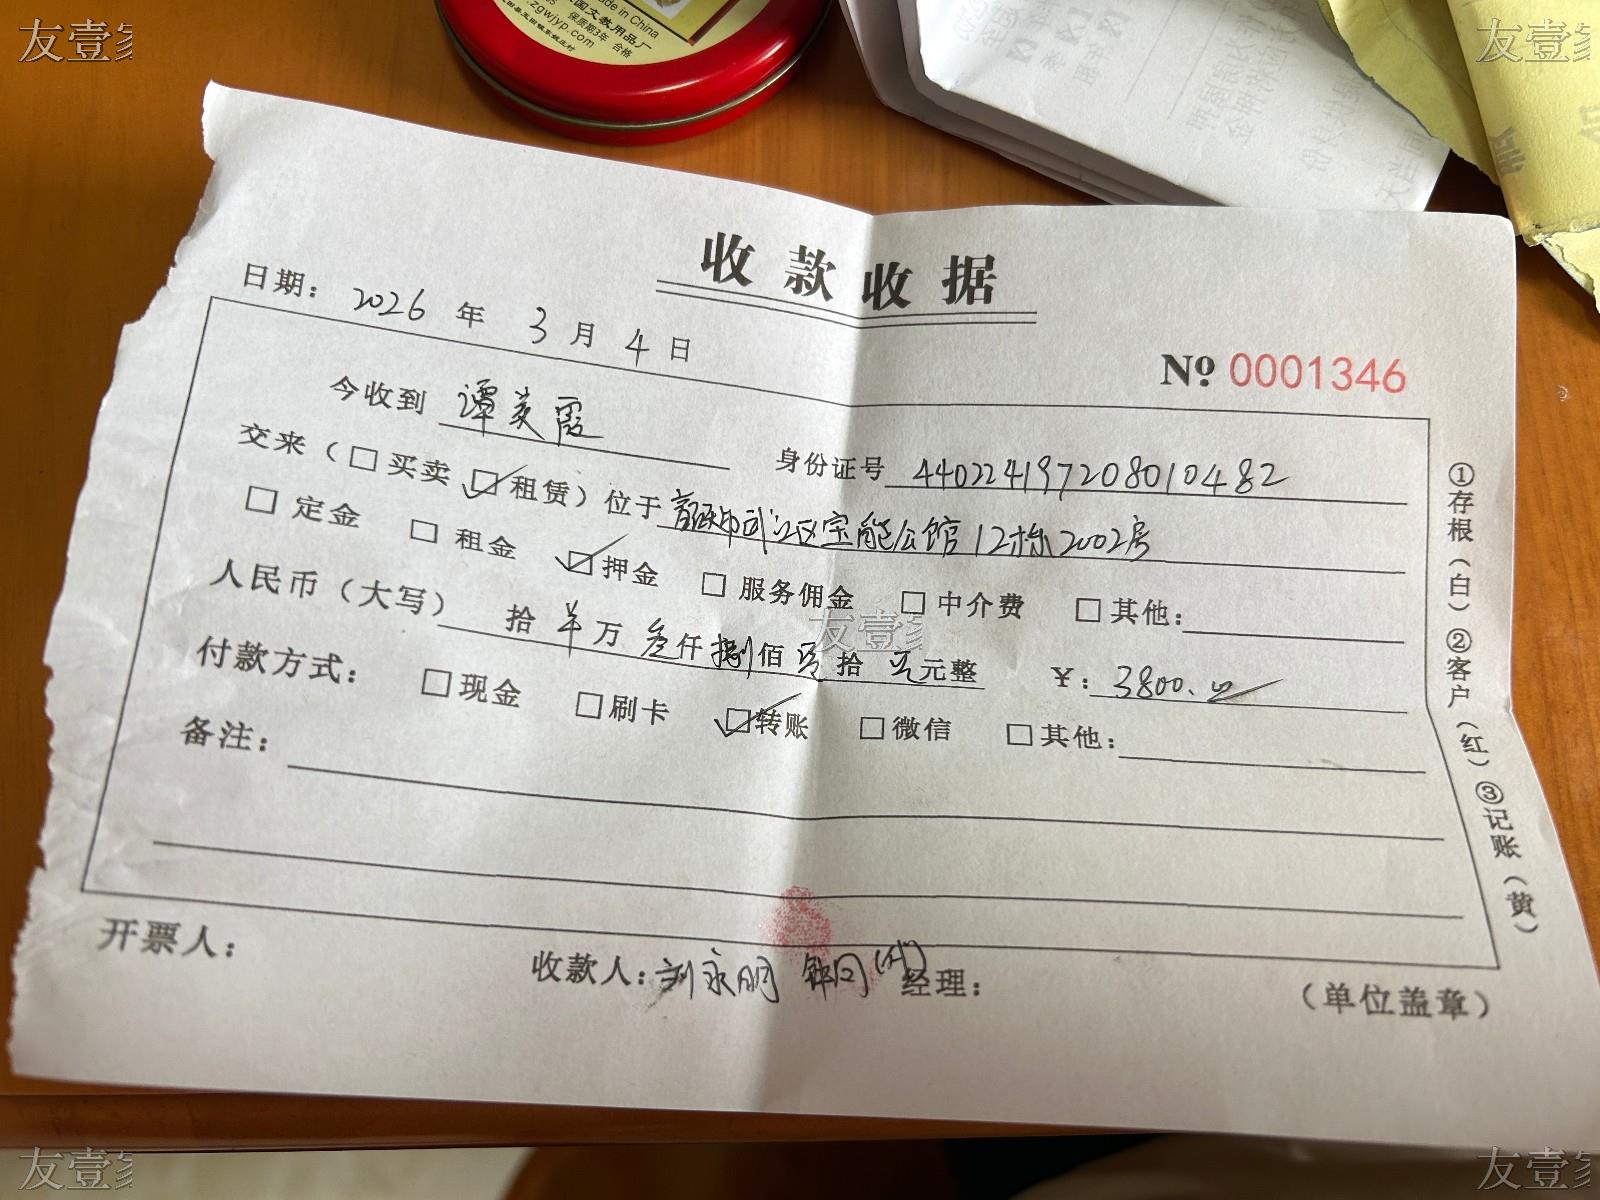 友壹家
友壹家
Made in China
国文教用品厂
保质期3年 合格
zgwjyp.com
收款收据
日期: 2026 年 3 月 4 日
№ 0001346
今收到 谭美霞 身份证号 440224197208010482
交来（□买卖 ☑租赁）位于 韶关市武江区宝能公馆12栋2002房
□ 定金 □ 租金 ☑ 押金 □ 服务佣金 □ 中介费 □ 其他:
人民币（大写） 拾 万 叁仟 捌佰 零拾 元整 ¥: 3800.00
付款方式: □现金 □刷卡 ☑转账 □微信 □其他:
备注:
开票人: 收款人: 刘永明 (代) 经理: （单位盖章）
①存根（白）②客户（红）③记账（黄）
友壹家
友壹家
友壹家